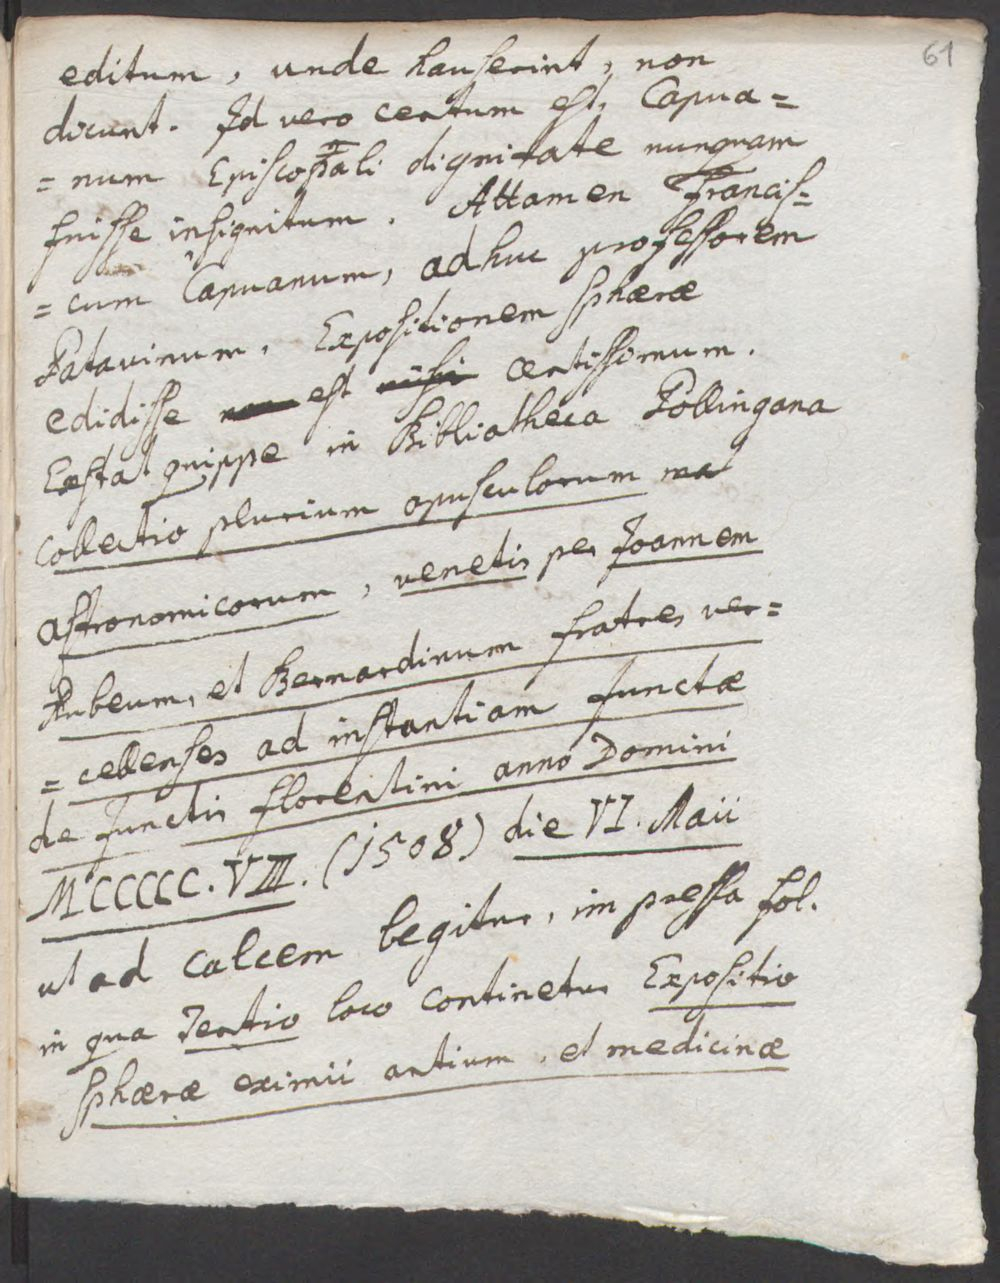 61
editum, unde hauserint, non
dicunt. Id vero certum est, Capua=
=num Episcopali dignitate nunquam
fuisse insignitum. Attamen Francis=
=cum Capuanum, adhuc professorem
Patavinum, Expositionem Sphæræ
edidisse est certissimum.
Exstat quippe in Bibliatheca Pollingana
Collectio plurium opusculorum
astronomicorum, venetis per Joannem
Rubeum, et Bernardinum fratres ver=
=cellenses ad instantiam Junctæ
de Junctis florentini anno Domini
MCCCCC.VIII. (1508) die VI. Maii
ut ad calcem legitur, impressa fol.
in qua Tertio loco continetur Expositio
Sphæræ eximii artium, et medicinæ